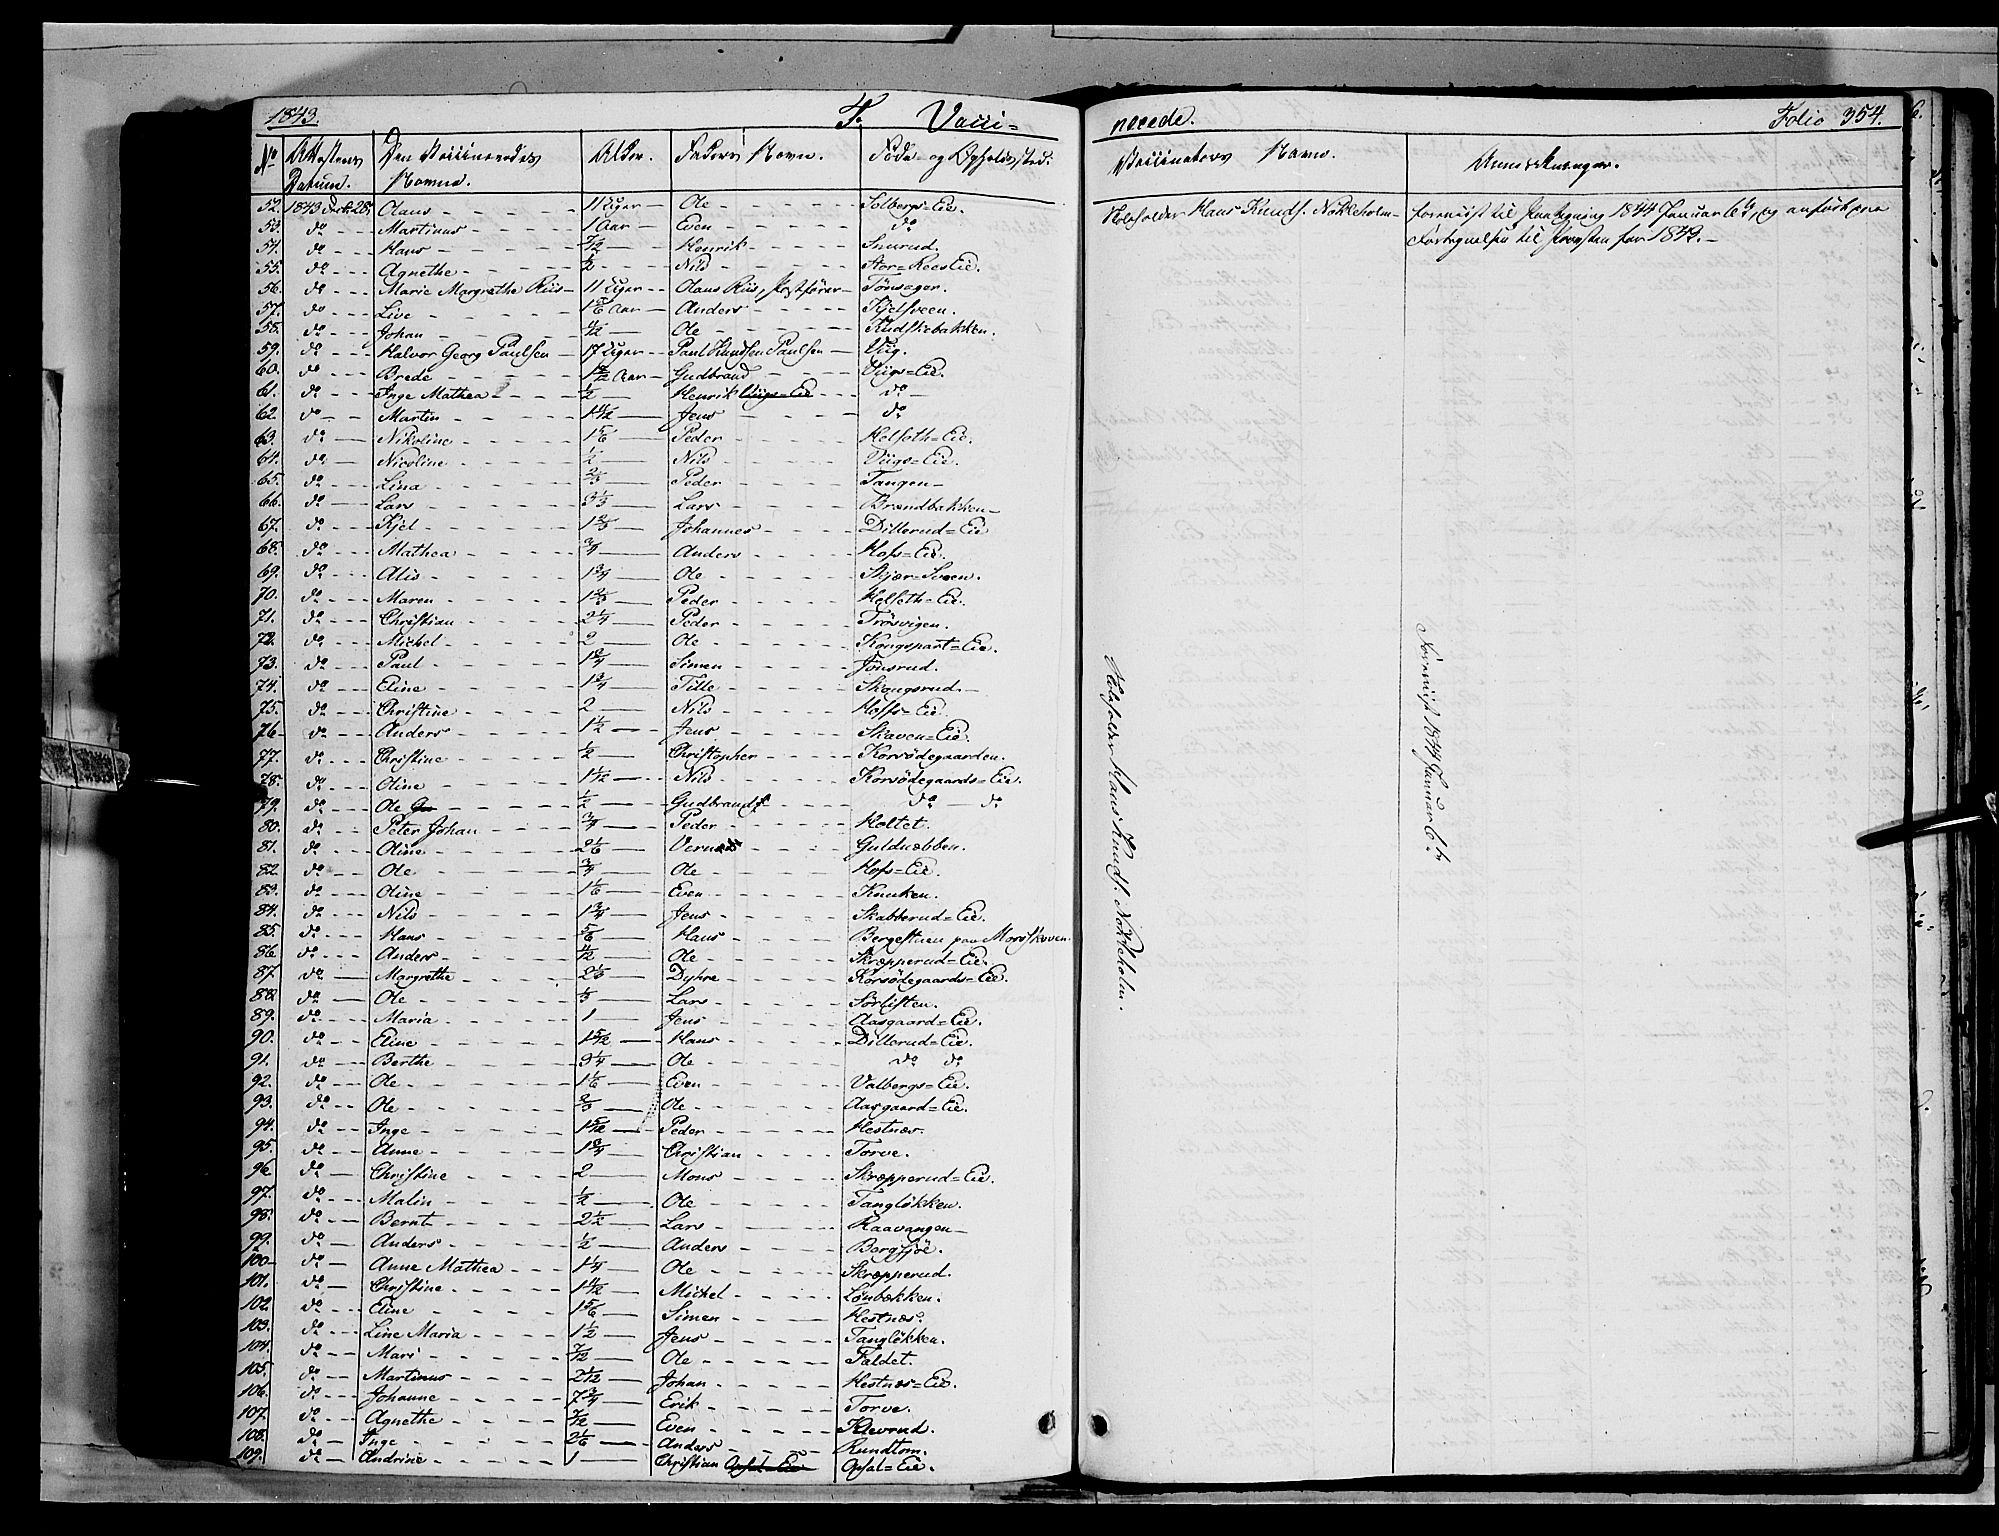 1843. F. Vacci=
No Attestens Datum. Den Vaccineredes Navne. Alder. Faders Navn. Føde- og Opholdssted.
52. 1843 28 Olaus 11 Uger Ole Solbergs=Eie.
53. do Martinus 1 Aar Even do
54. do Hans 7/12 Henrik Snurud.
55. do Agnethe Nils Stor=Rees Eie.
56. do Marie Margrethe Riis 11 Uger Olaus Riis, Postfører Tønsager.
57. do Live Aar Anders Kjelsveen.
58. do Johan Ole Kudskebakken.
59. do Halvor Georg Paulsen 17 Uger Paul Knudsen Paulsen Viig.
60. do Brede Aar Gudbrand Viigs=Eie.
61. do Inge Mathea 1/2 Henrik Viigs=Eie do
62. do Martin Jens do
63. do Nikoline 1 5/6 Peder Helseth=Eie.
64. do Nicoline 1/2 Nils Viigs=Eie.
65. do Lina 2/3 Peder Tangen
66. do Lars 3 1/3 Lars Brændbakken
67. do Kjel 1 2/3 Johannes Dillerud=Eie
68. do Mathea 3/4 Anders Hofs=Eie.
69. do Alis 1 3/4 Ole Skjær=Sveen.
70. do Maren 1 2/3 Peder Helseth=Eie.
71. do Christian 2 1/4 Peder Trøsvigen.
72. do Michel 2 Ole Kongspart=Eie.
73. do Paul 1 3/4 Simen Jønsrud.
74. do Eline 1 3/4 Tille Skougsrud.
75. do Christine 2 Nils Hoffs=Eie.
76. do Anders 1 1/2 Jens Skaven=Eie.
77. do Christine 1/2 Christopher Korsødegaarden.
78. do Oline 1 1/12 Nils Korsødegaards=Eie.
79. do Ole 1/2 Gudbrand do do
80. do Peter Johan 3/4 Peder Holtet.
81. do Oline 2 1/6 Guldnæbben.
82. do Ole 3/4 Ole Hofs=Eie.
83. do Oline 1 1/6 Even Knuken.
84. do Nils 1 3/4 Jens Skabberud=Eie.
85. do Hans 5/6 Hans Bergestuen paa Morskoven.
86. do Anders Ole Skræpperud=Eie.
87. do Margrethe Dyhre Korsødegaards=Eie.
88. do Ole 1/3 Lars Sørlisten.
89. do Maria 1 Jens Aasgaard=Eie.
90. do Eline 1 5/12 Hans Dillerud=Eie.
91. do Berthe 3 1/4 Ole do do
92. do Ole 1 1/6 Even Valbergs=Eie.
93. do Ole 2/3 Ole Aasgaard=Eie.
94. do Inge 1 5/12 Peder Hestnæs.
95. do Anne 1 3/4 Christian Torve.
96 do Christine 2 Mons Skræpperud=Eie.
97. do Malin 1/2 Ole Tangløkken.
98. do Bernt 2 1/2 Lars Raavangen
99. do Anders 1/2 Anders Bergsjøe.
100 do Anne Mathea 1 1/4 Ole Skræpperud.
101. do Christine Michel Lønbækken.
102. do Eline 1 5/6 Simen Hestnæs.
103. do Line Maria 1 1/2 Jens Tangløkken.
104. do Mari 7/12 Ole Faldet.
105. do Martinus 2 1/12 Johan Hestnæs=Eie.
106. do Johanne 7 3/4 Erik Torve.
107. do Agnethe 7/12 Even Klevrud.
108. do Inge 2 1/6 Anders Rundtom.
109. do Andrine 1 Christian Opsal=Eie Opsal=Eie.
nerede. Folio 354.
Vaccinateurs Navn. Anmærkninger.
Hans Knuds. Nøkleholm foreviist til Paategning 1844 Januar 6te, og anført paa
Fortegnelsen til Provsten for 1843.
Hans Knuds. Nøkleholm.
Foreviist 1844 Januar 6te